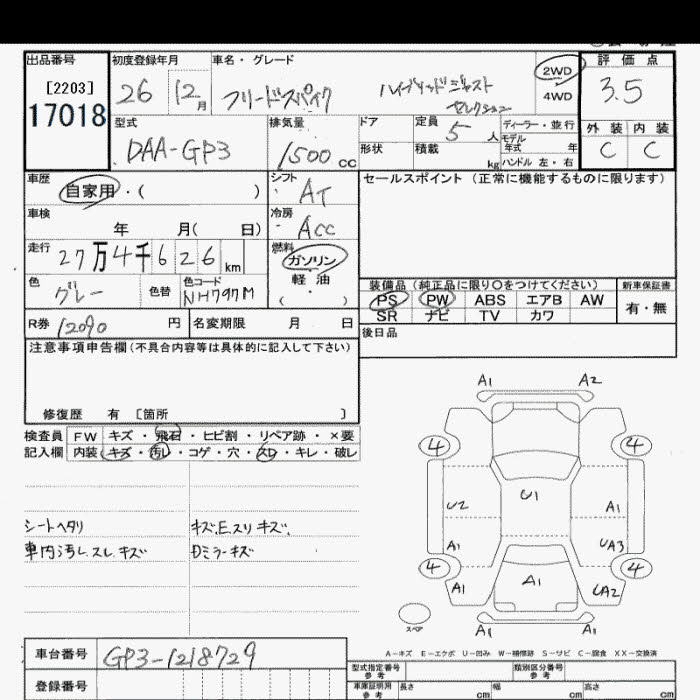 出品番号
[2203]
17018
初度登録年月
26 12月
車名・グレード
フリードスパイク ハイブリッドジャスト
セレクション
2WD
4WD
評価点
3.5
外装 内装
C C
型式
DAA-GP3
排気量
1500 cc
ドア
形状
定員 5 人
積載 kg
ディーラー・並行
モデル
年式 年
ハンドル 左・右
車歴
自家用・( )
シフト
AT
セールスポイント (正常に機能するものに限ります)
車検
年 月( 日)
冷房
Acc
走行
27万4千626 km
燃料
ガソリン
軽油
( )
色
グレー
色替
色コード
NH797M
装備品 (純正品に限り○をつけてください)
PS PW ABS エアB AW
SR ナビ TV カワ
新車保証書
有・無
R券 12090 円
名変期限 月 日
後日品
注意事項申告欄(不具合内容等は具体的に記入して下さい)
修復歴 有 〔箇所 〕
検査員
記入欄
FW キズ・飛石・ヒビ割・リペア跡・×要
内装 キズ・汚レ・コゲ・穴・スレ・キレ・破レ
シートヘタリ キズ.E.スリキズ.
車内汚レ.スレ.キズ Dミラーキズ
A1 A2
4 4
U2 U1 A1
A1 UA3
4 4
A1 A1 UA2
スペア
A1 A1
A-キズ E-エクボ U-凹み W-補修跡 S-サビ C-腐食 XX-交換済
車台番号
GP3-1218729
登録番号
型式指定番号
参考
類別区分番号
参考
車庫証明用
参考
長さ cm
幅 cm
高さ cm